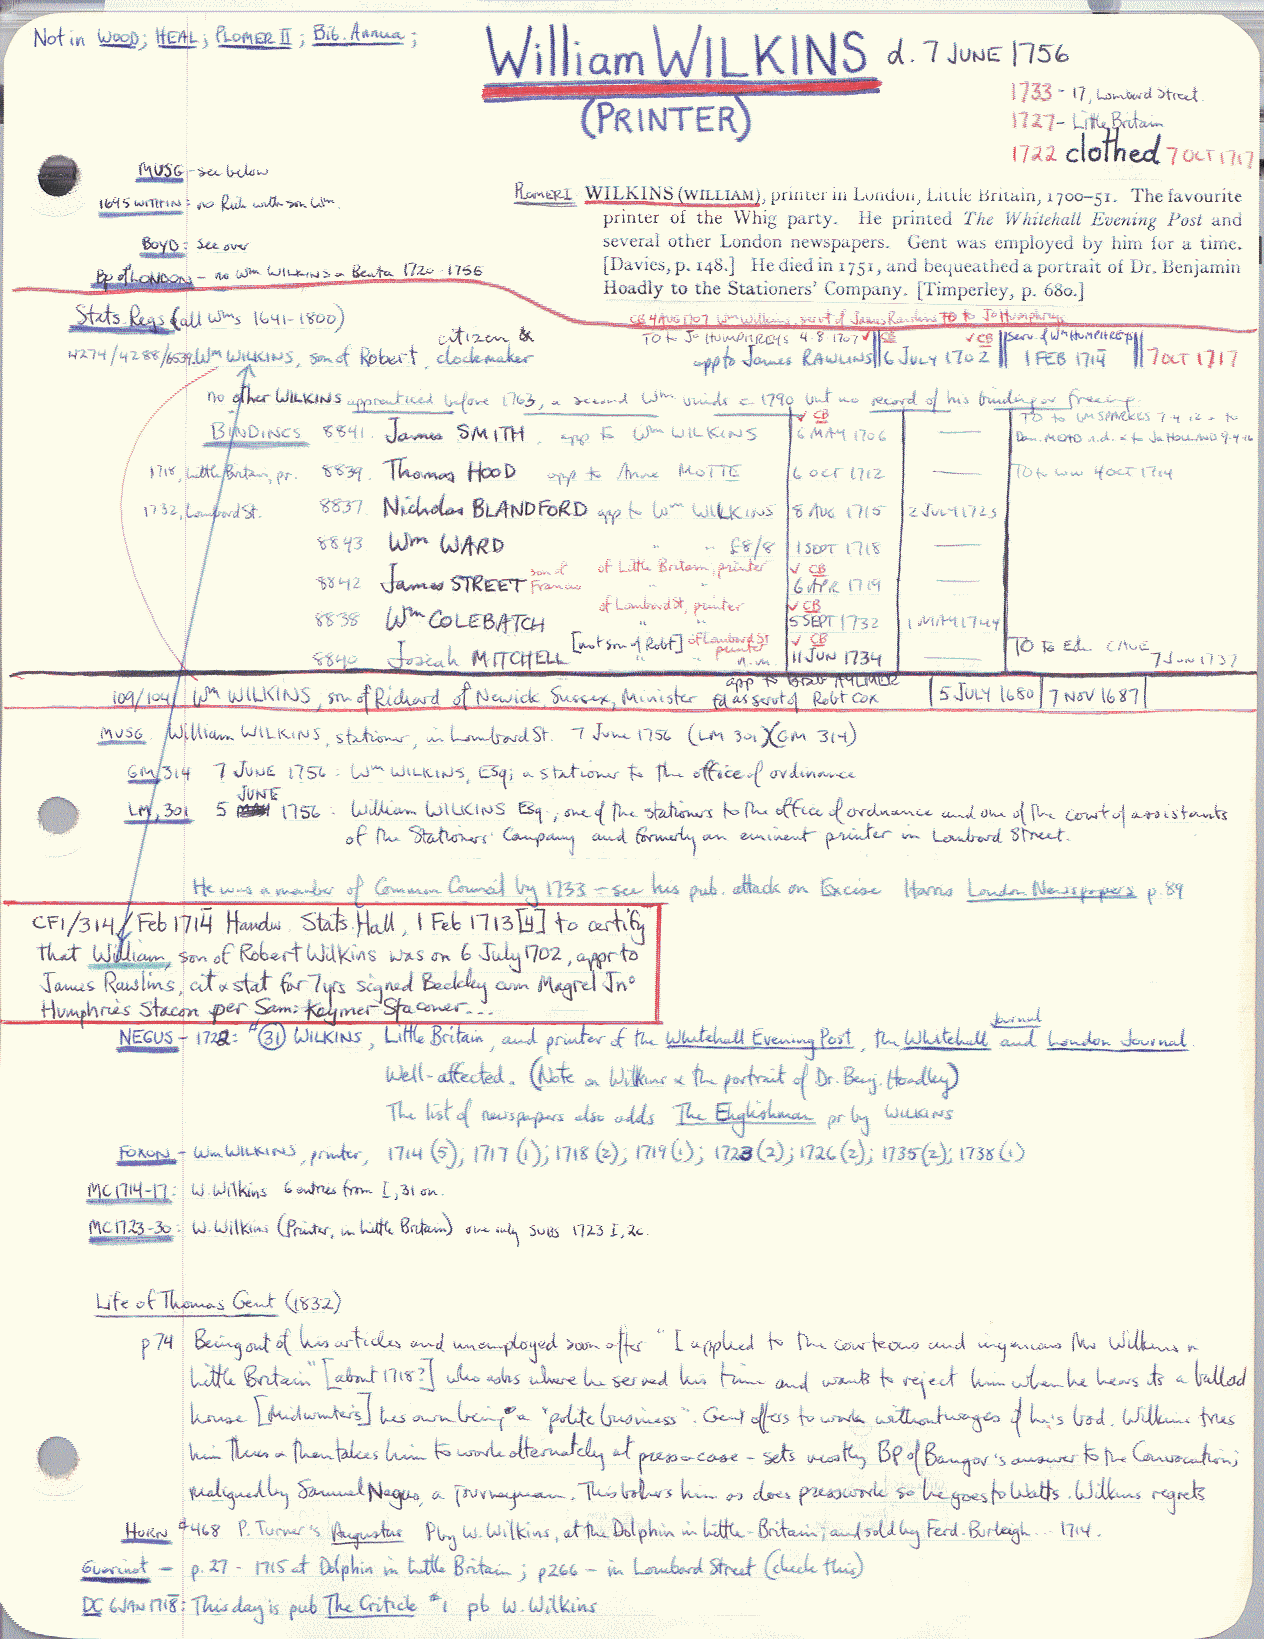 Not in WOOD; HEAL; PLOMER II; Bib. Annua;
William WILKINS d. 7 JUNE 1756
(PRINTER)
1733 - 17, Lombard Street.
1727 - Little Britain
1722 clothed 7 OCT 1717
MUSG - see below
1695 WITHIN: no Rich with son Wm.
BOYD: see over
Bp of LONDON - no Wm WILKINS = Beata 1720-1756
PLOMER I WILKINS (WILLIAM), printer in London, Little Britain, 1700-51. The favourite
printer of the Whig party. He printed The Whitehall Evening Post and
several other London newspapers. Gent was employed by him for a time.
[Davies, p. 148.] He died in 1751, and bequeathed a portrait of Dr. Benjamin
Hoadly to the Stationers' Company. [Timperley, p. 680.]
CB 4 AUG 1707 Wm Wilkins, servt of James Rawlins TO to Jo Humphreys
Stats Regs (all Wms 1641-1800)
TO to Jo HUMPHREYS 4.8.1707 ✓ CB ✓ CB serv. of Wm HUMPHREYS
4274/4288/6539. Wm WILKINS, son of Robert, citizen & clockmaker app to James RAWLINS 6 JULY 1702 1 FEB 1714 7 OCT 1717
no other WILKINS apprenticed before 1763, a second Wm binds c 1790 but no record of his binding or freeing.
BINDINGS 8841. James SMITH, app to Wm WILKINS ✓ CB 6 MAY 1706 — TO to WM SPARKES 7.4.12 & to
Dan. MOTO n.d. & to Jn HOLLAND 9.4.16
1718, Little Britain, pr. 8839. Thomas HOOD app to Anne MOTTE 6 OCT 1712 — TO to WW 4 OCT 1714
1732, Lombard St. 8837. Nicholas BLANDFORD app to Wm WILKINS 8 AUG 1715 2 JULY 1723
8843 Wm WARD " " £8/8 1 SEPT 1718 —
8842 James STREET son of Francis of Little Britain, printer ✓ CB 6 APR 1719 —
8838 Wm COLEBATCH of Lombard St, printer ✓ CB 5 SEPT 1732 1 MAY 1744
8840 Josiah MITCHELL [not son of Robt] of Lombard St printer n.m. ✓ CB 11 JUN 1734 TO to Ed. CAVE 7 JUN 1737
109/104 Wm WILKINS, son of Richard of Newick, Sussex, Minister app to Brab AYLMER fd as servt of Robt Cox 5 JULY 1680 7 NOV 1687
MUSG. William WILKINS, stationer, in Lombard St. 7 June 1756 (LM 301)(GM 314)
GM 314 7 JUNE 1756: Wm WILKINS, Esq; a stationer to the office of ordinance
LM, 301 5 JUNE 1756: William WILKINS Esq., one of the stationers to the office of ordnance and one of the court of assistants
of the Stationers' Company and formerly an eminent printer in Lombard Street.
He was a member of Common Council by 1733 - see his pub. attack on Excise Harris London Newspapers p.89
CF1/314/ Feb 1714 Handw. Stats. Hall, 1 Feb 1713[4] to certify
that William, son of Robert Wilkins was on 6 July 1702, appr to
James Rawlins, cit & stat for 7 yrs signed Beckley cum Magrel Jno
Humphries Stacon per Sam: Keymer Staconer...
NEGUS - 1722: #(31) WILKINS, Little Britain, and printer of the Whitehall Evening Post, the Whitehall Journal and London Journal.
Well-affected. (Note on Wilkins & the portrait of Dr. Benj. Hoadley)
The list of newspapers also adds The Englishman pr by WILKINS
FOXON - Wm WILKINS, printer, 1714 (5); 1717 (1); 1718 (2); 1719 (1); 1723 (2); 1726 (2); 1735 (2); 1738 (1)
MC1714-17: W. Wilkins 6 entries from I, 31 on.
MC1723-30: W. Wilkins (Printer, in Little Britain) one only SUBS 1723 I, 2c.
Life of Thomas Gent (1832)
p 74 Being out of his articles and unemployed soon after "I applied to the courteous and ingenious Mr Wilkins in
Little Britain" [about 1718?] who asks where he served his time and wants to reject him when he hears its a ballad
house [Midwinter's] his own being a "polite business". Gent offers to work without wages if he's bad. Wilkins tries
him thus & then takes him to work alternately at press & case - sets mostly BP of Bangor's answer to the Convocation;
maligned by Samuel Negus, a journeyman. This bothers him as does presswork so he goes to Watts. Wilkins regrets
HORN #468 P. Turner's Augustus P by W. Wilkins, at the Dolphin in Little-Britain; and sold by Ferd. Burleigh... 1714.
Guerinot - p. 27 - 1715 at Dolphin in Little Britain; p266 - in Lombard Street (check this)
DC 6 JAN 1718: This day is pub The Critick #1 pb W. Wilkins